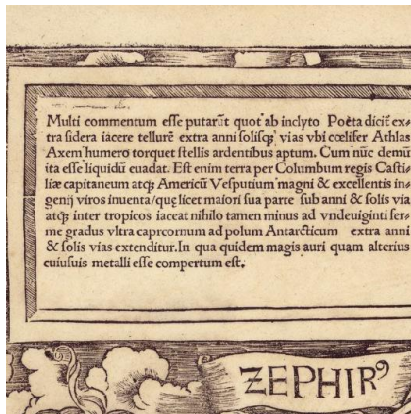 Multi commentum esse putarūt quot ab inclyto Poëta dicit̄ ex⸗
tra sidera iacere tellurē extra anni solisq́; vias vbi cœlifer Athlas
Axem humero torquet stellis ardentibus aptum. Cum nūc demū
ita esse liquidū euadat. Est enim terra per Columbum regis Casti⸗
liæ capitaneum atq́; Americū Vesputium magni & excellentis in⸗
genij viros inuenta/quę licet maiori sua parte sub anni & solis via
atq́; inter tropicos iaceat nihilo tamen minus ad vndeuiginti fer⸗
me gradus vltra caprcornum ad polum Antarcticum extra anni
& solis vias extenditur. In qua quidem magis auri quam alterius
cuiusuis metalli esse compertum est.
ZEPHIRꝰ